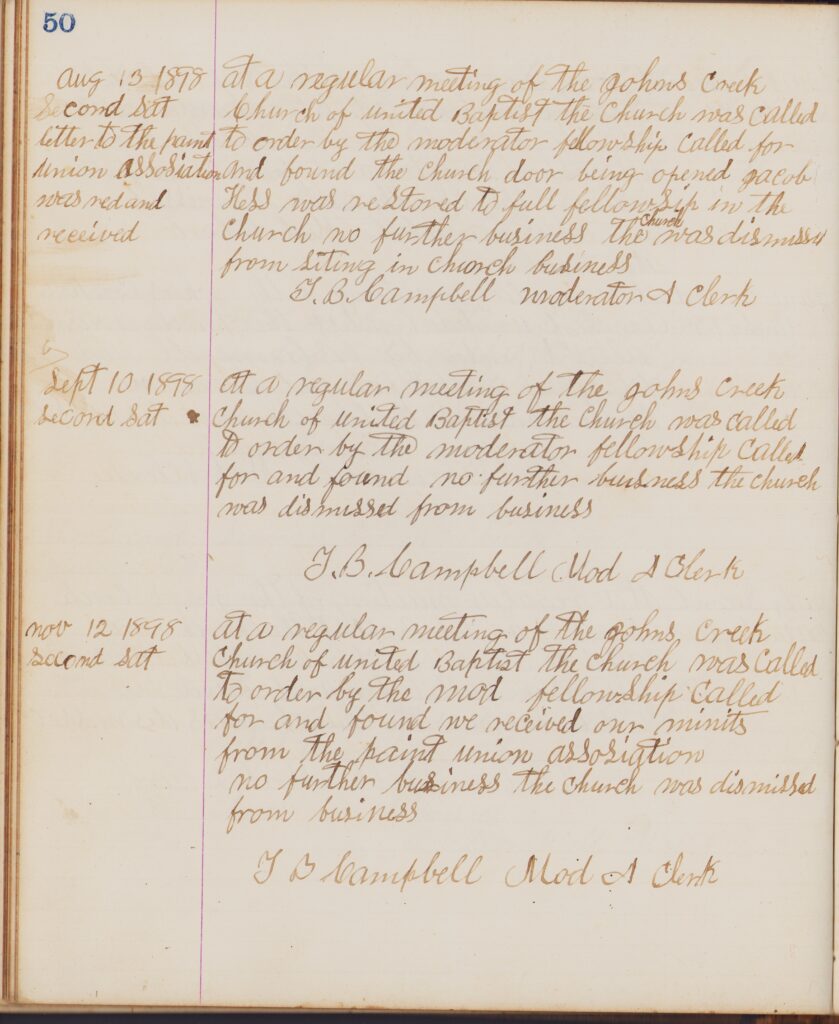 50
aug 13 1898
second sat
letter to the paint
union assosiation
was red and
received
at a regular meeting of the johns creek
Church of united Baptist the Church was called
to order by the moderator fellowship called for
and found the church door being opened jacob
Hess was restored to full fellowship in the
church no further business the church was dismissed
from siting in church business
T. B. Campbell moderator & Clerk
Sept 10 1898
second sat
at a regular meeting of the johns creek
Church of united Baptist the Church was called
to order by the moderator fellowship called
for and found no further buisness the church
was dismissed from business
T. B. Campbell Mod & Clerk
nov 12 1898
second sat
at a regular meeting of the johns creek
church of united Baptist the church was called
to order by the mod fellowship called
for and found we received our minits
from the paint union assosiation
no further business the church was dismissed
from business
T B Campbell Mod & Clerk